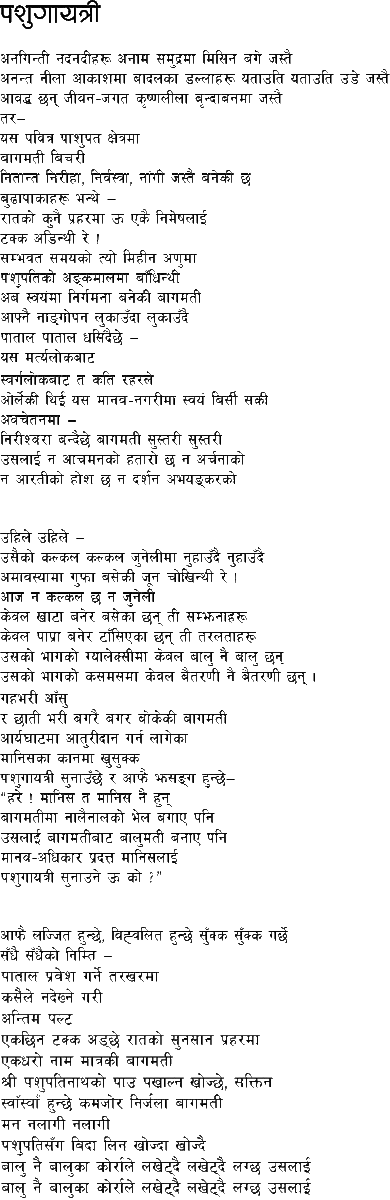 पशुगायत्री
अनगिन्ती नदनदीहरू अनाम समुद्रमा मिसिन बगे जस्तै
अनन्त नीला आकाशमा बादलका डल्लाहरू यताउति यताउति उडे जस्तै
आवद्ध छन् जीवन-जगत कृष्णलीला बृन्दाबनमा जस्तै
तर–
यस पवित्र पाशुपत क्षेत्रमा
बागमती बिचरी
नितान्त निरीहा, निर्वस्त्रा, नांगी जस्तै बनेकी छ
बुढापाकाहरू भन्थे –
रातको कुनै प्रहरमा ऊ एकै निमेषलाई
टक्क अडिन्थी रे !
सम्भवत समयको त्यो मिहीन अणुमा
पशुपतिको अङ्कमालमा बाँधिन्थी
अब स्वयंमा निर्गमना बनेकी बागमती
आफ्नै नाङ्गोपन लुकाउँदा लुकाउँदै
पाताल पाताल धसिदैछे –
यस मर्त्यलोकबाट
स्वर्गलोकबाट त कति रहरले
ओर्लेकी थिई यस मानव-नगरीमा स्वयं विर्सी सकी
अवचेतनमा –
निरीश्वरा बन्दैछे बागमती सुस्तरी सुस्तरी
उसलाई न आचमनको हतारो छ न अर्चनाको
न आरतीको होश छ न दर्शन अभयङ्करको
उहिले उहिले –
उसैको कल्कल कल्कल जुनेलीमा नुहाउँदै नुहाउँदै
अमावस्यामा गुफा बसेकी जून चोखिन्थी रे !
आज न कल्कल छ न जुनेली
केवल खाटा बनेर बसेका छन् ती सम्झनाहरू
केवल पाप्रा बनेर टाँसिएका छन् ती तरलताहरू
उसको भागको ग्यालेक्सीमा केवल बालु नै बालु छन्
उसको भागको कसमसमा केवल बैतरणी नै बैतरणी छन् ।
गहभरी आँसु
र छाती भरी बगरै बगर बोकेकी बागमती
आर्यघाटमा आतुरीदान गर्न लागेका
मानिसका कानमा खुसुक्क
पशुगायत्री सुनाउँछे र आफै झसङ्ग हुन्छे–
“हरे ! मानिस त मानिस नै हुन्
बागमतीमा नालैनालको भेल बगाए पनि
उसलाई बागमतीबाट बालुमती बनाए पनि
मानव-अधिकार प्रदत्त मानिसलाई
पशुगायत्री सुनाउने ऊ को ?”
आफै लज्जित हुन्छे, विह्वलित हुन्छे सुँक्क सुँक्क गर्छे
सँधै सँधैको निम्ति –
पाताल प्रवेश गर्ने तरखरमा
कसैले नदेख्ने गरी
अन्तिम पल्ट
एकछिन टक्क अड्छे रातको सुनसान प्रहरमा
एकधरो नाम मात्रकी बागमती
श्री पशुपतिनाथको पाउ पखाल्न खोज्छे, सक्तिन
स्वाँस्वाँ हुन्छे कमजोर निर्जला बागमती
मन नलागी नलागी
पशुपतिसँग बिदा लिन खोज्दा खोज्दै
बालु नै बालुका कोर्राले लखेट्दै लखेट्दै लग्छ उसलाई
बालु नै बालुका कोर्राले लखेट्दै लखेट्दै लग्छ उसलाई